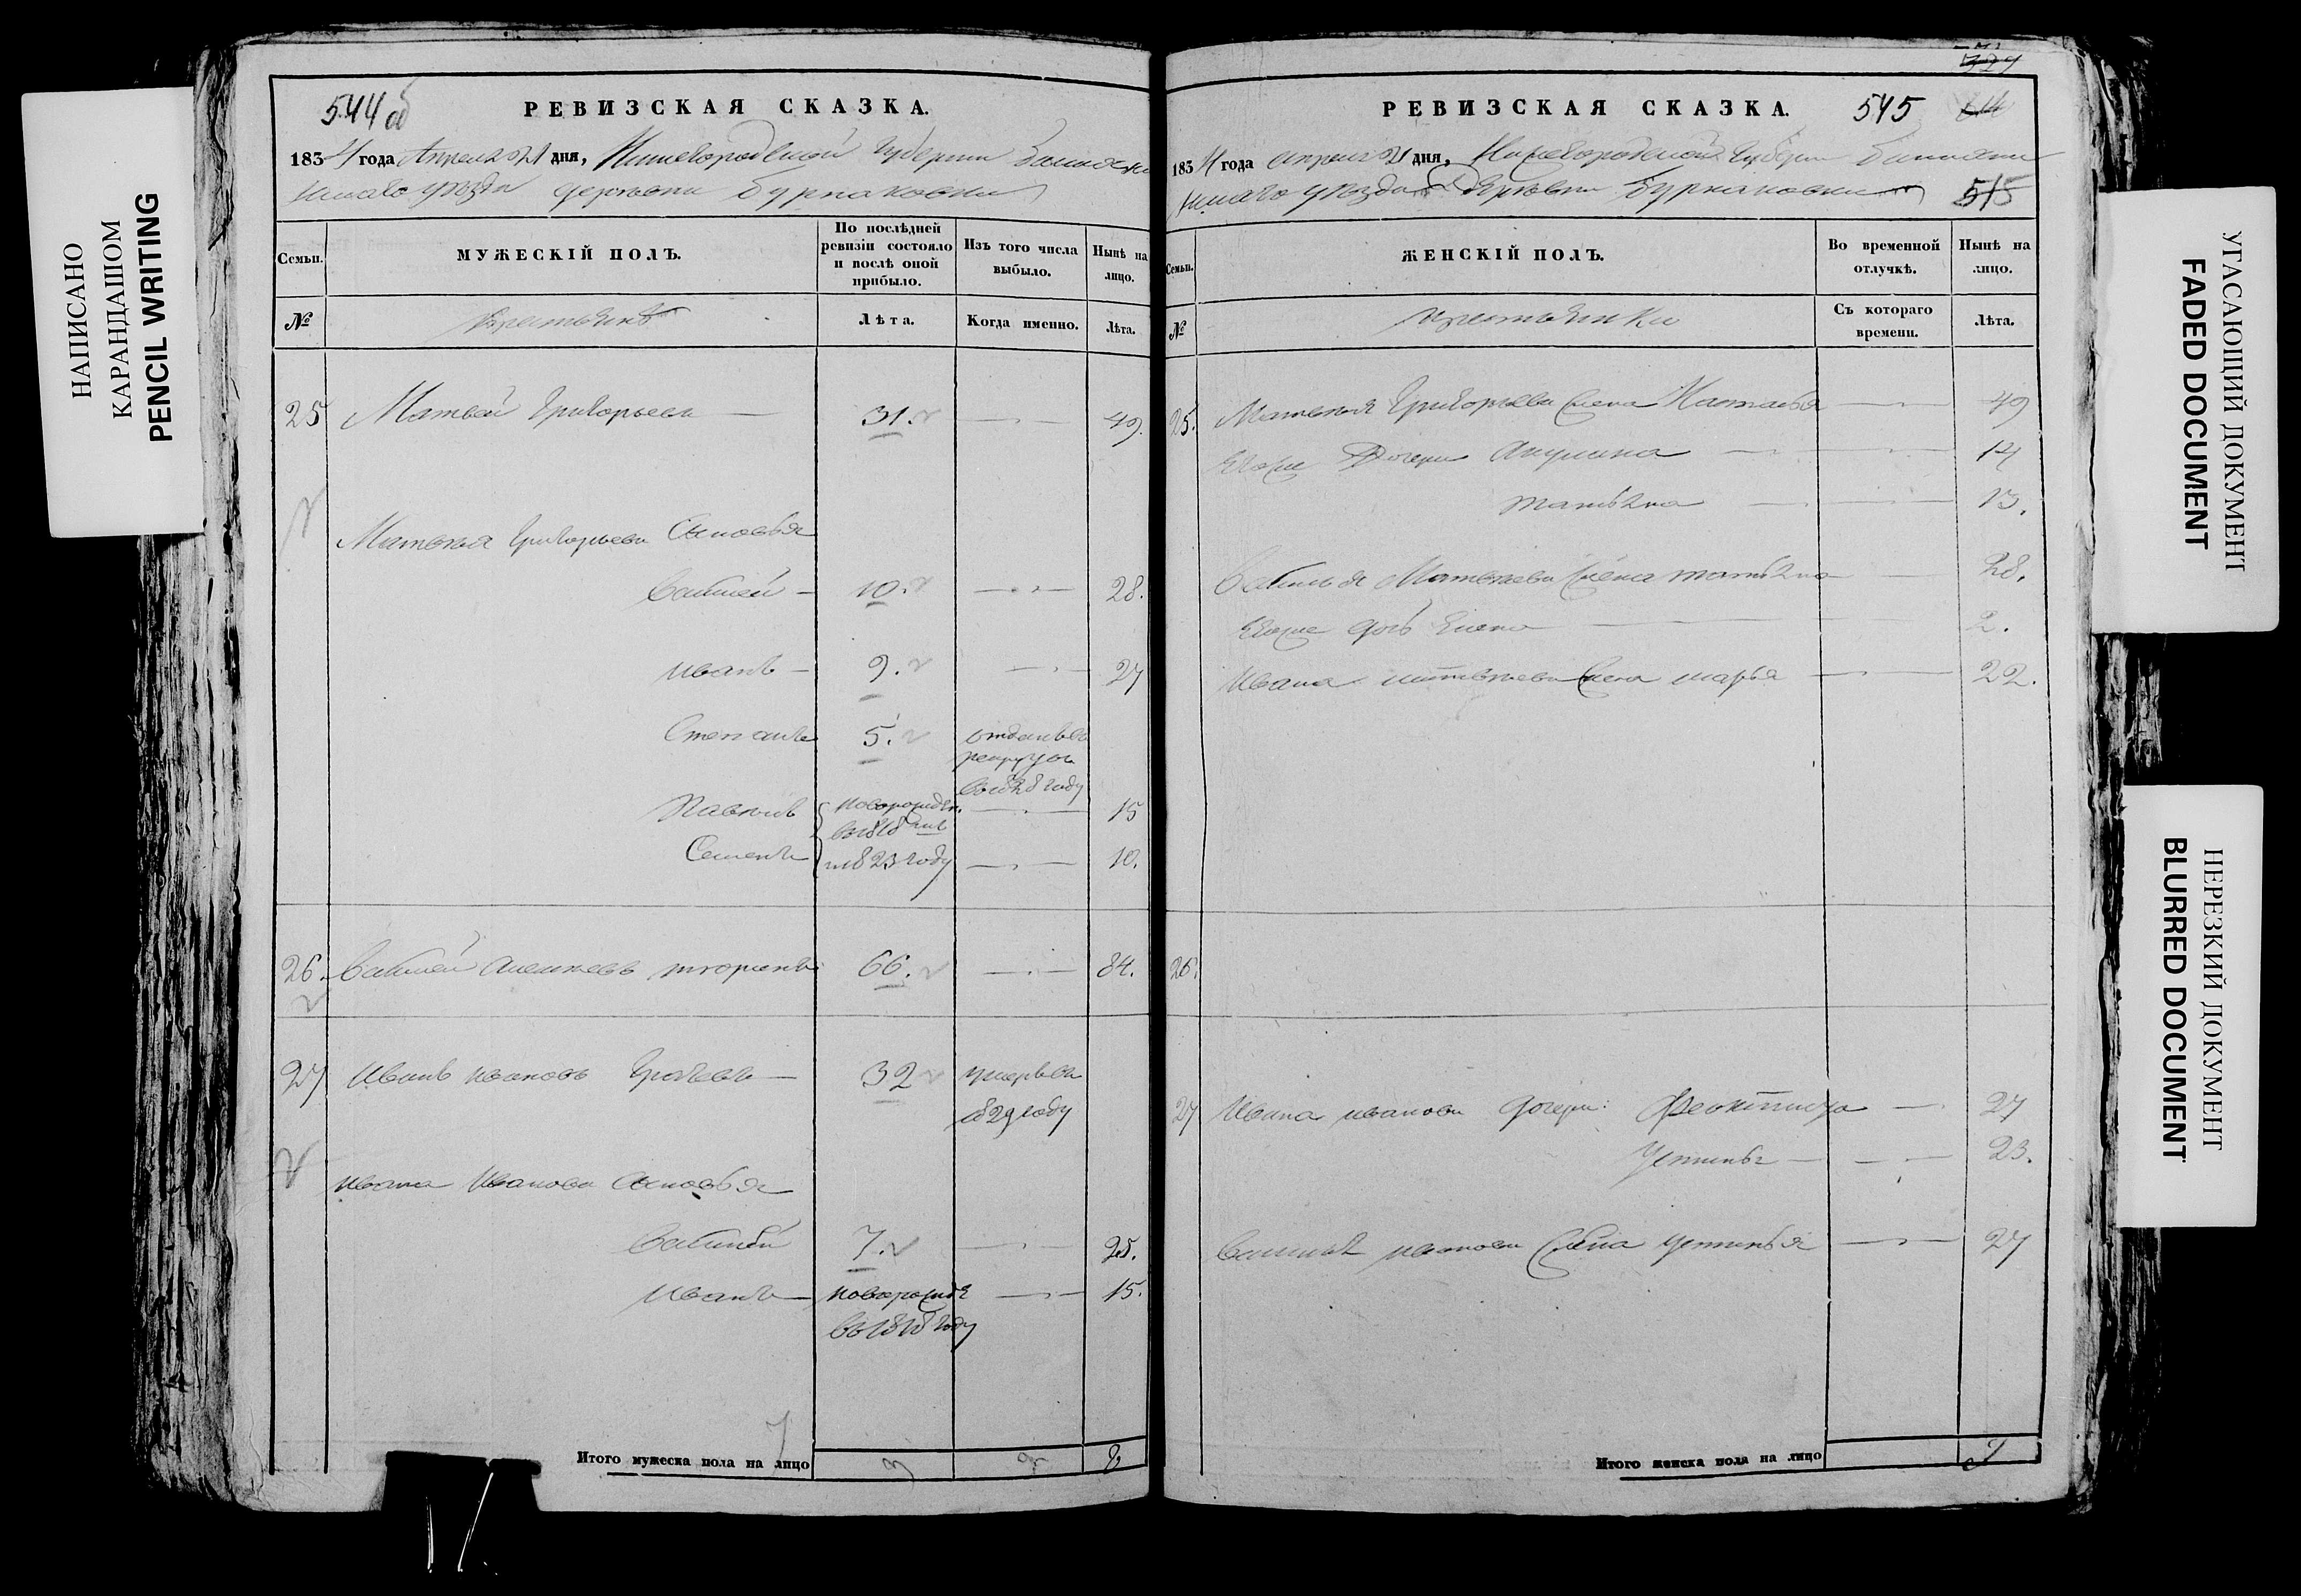 НАПИСАНО
КАРАНДАШОМ
PENCIL WRITING
544 об
РЕВИЗСКАЯ СКАЗКА.
1834 года Апреля 21 дня, Нижегородской Губернии
уезда деревни Бурнаковки
Семьи.
МУЖЕСКІЙ ПОЛЪ.
По послѣдней ревизіи состояло и послѣ оной прибыло.
Изъ того числа выбыло.
Нынѣ на лицо.
№
Лѣта.
Когда именно.
Лѣта.
25 Матвей Григорьевъ 31. 49.
Матвея Григорьева Сыновья
Василей 10. 28.
Иванъ 9. 27
Степанъ 5. отданъ въ рекруты въ 1828 году
Павелъ новорожден. въ 1818 15
Семенъ 1823 году 10.
26. Василей 66. 84.
27 Иванъ Ивановъ 32 умеръ въ 1829 году
Ивана Иванова Сыновья
Василей 7. 25.
Иванъ новорожде въ 1818 году 15.
7
Итого мужеска пола на лицо 8
17.
545
РЕВИЗСКАЯ СКАЗКА.
1834 года Апреля 21 дня, Нижегородской Губернии
уезда деревни Бурнаковки
515
Семьи.
ЖЕНСКІЙ ПОЛЪ.
Во временной отлучкѣ.
Нынѣ на лицо.
№
крестьянки
Съ котораго времени.
Лѣта.
25. Матвея Григорьева жена Настасья 49
Его же Дочери Акулина 14
Татьяна 13.
Василья Матвеева жена Татьяна 28.
Его же дочь Елена 2.
Ивана Матвеева жена Марья 22.
26.
27 Ивана Иванова дочери: 27
Устинья 23.
Василья Иванова жена Устинья 27
Итого женска пола на лицо
УГАСАЮЩИЙ ДОКУМЕНТ
FADED DOCUMENT
НЕРЕЗКИЙ ДОКУМЕНТ
BLURRED DOCUMENT